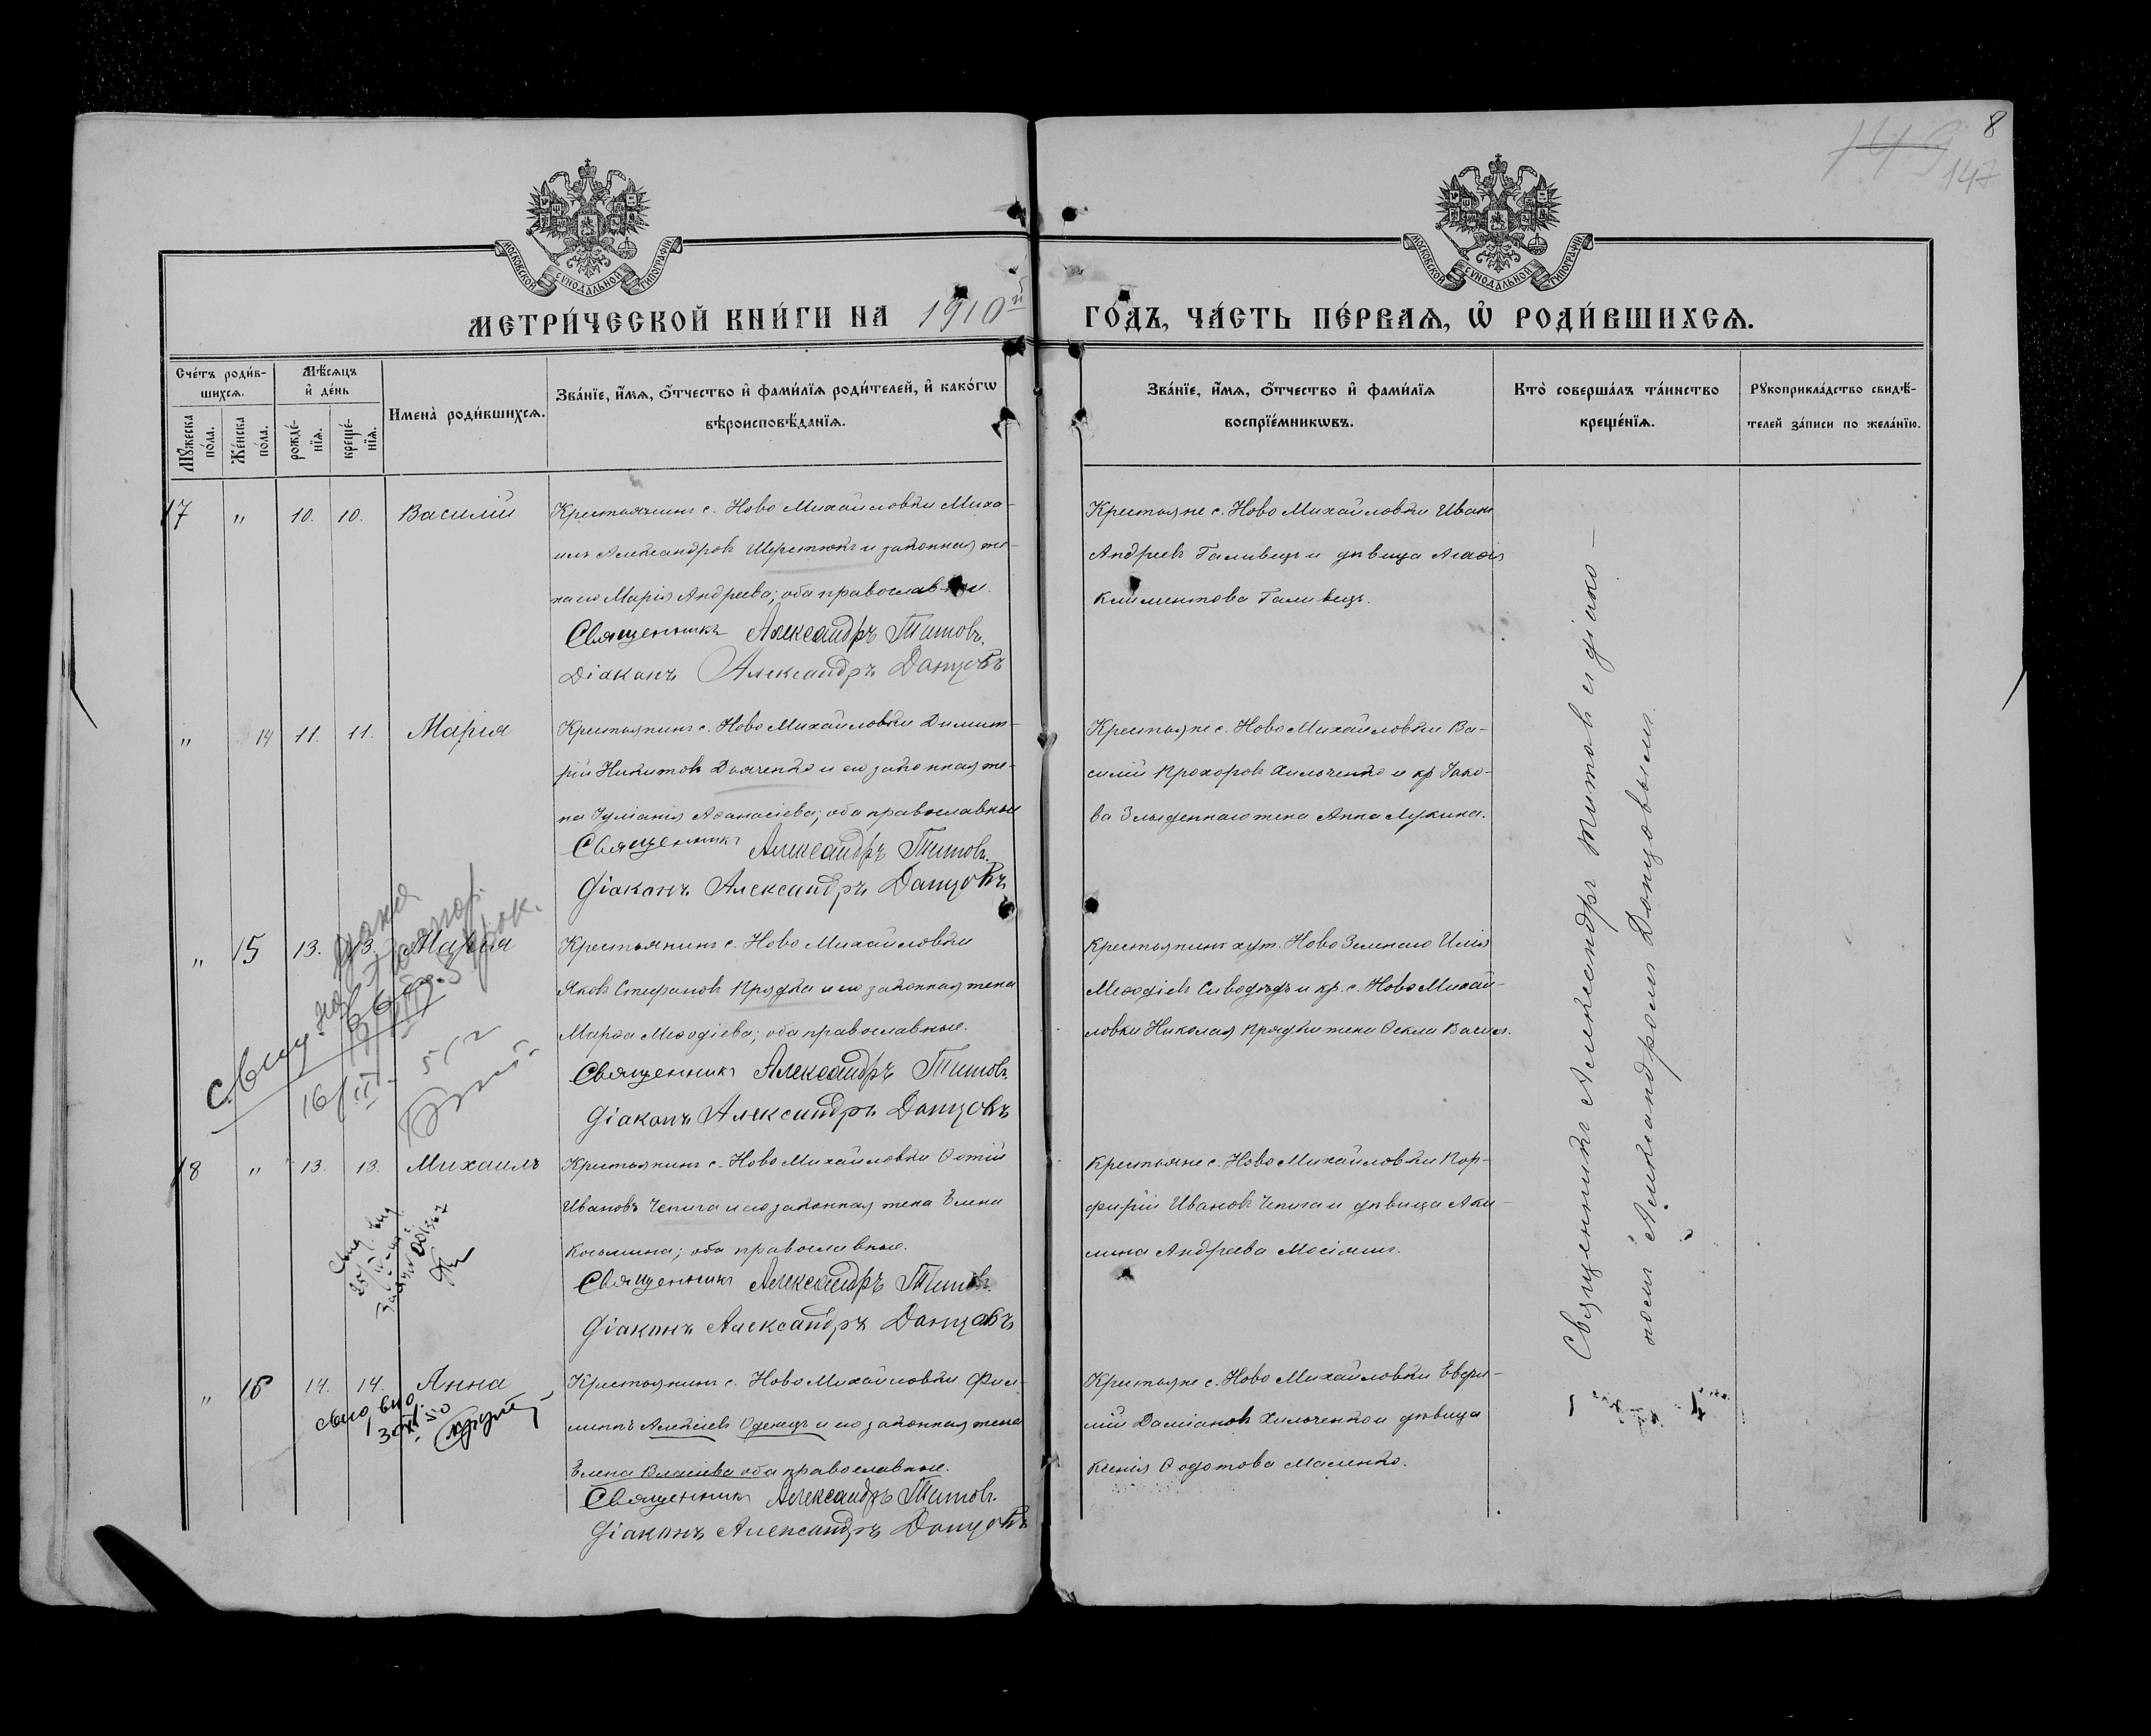 8
149
147
МОСКОВСКОЙ СѴНОДАЛЬНОЙ ТИПОГРАФІИ
МОСКОВСКОЙ СѴНОДАЛЬНОЙ ТИПОГРАФІИ
МЕТРИ́ЧЕСКОЙ КНИ́ГИ НА 1910й ГО́ДЪ, ЧА́СТЬ ПЕ́РВАѦ, Ѡ҆ РОДИ́ВШИХСѦ.
Сче́тъ роди́в-
шихсѧ.
Мꙋ́жеска по́ла.
Же́нска по́ла.
Мѣ́сѧцъ и҆ де́нь
рожде́-нїѧ.
креще́-нїѧ.
Имена̀ роди́вшихсѧ.
Зва́нїе, и҆́мѧ, ѻ҆́тчество и҆ фами́лїѧ роди́телей, и҆ како́гѡ
вѣроисповѣ́данїѧ.
Зва́нїе, и҆́мѧ, ѻ҆́тчество и҆ фами́лїѧ
воспрїе́мникѡвъ.
Кто̀ соверша́лъ та́инство
креще́нїѧ.
Рꙋкоприкла́дство свидѣ́-
телей за́писи по жела́нїю.
17 " 10. 10. Василій
Крестьянинъ с. Ново Михайловки Миха-
илъ Александровъ Шерстюкъ и законная же-
на его Марія Андреева; оба православные.
Священникъ Александръ Титовъ.
Діаконъ Александръ Донцовъ
Крестьяне с. Ново Михайловки Иванъ
Андреевъ Галивецъ и дѣвица Агафія
Климентова Галивецъ.
" 14 11. 11. Марія
Крестьянинъ с. Ново Михайловки Димит-
рій Никитовъ Дьяченко и его законная же-
на Іуліанія Аѳанасіева; оба православные
Священникъ Александръ Титовъ.
Діаконъ Александръ Донцовъ
Крестьяне с. Ново Михайловки Ва-
силій Прохоровъ Хильченко и кр. Іако-
ва Злыденнаго жена Анна Лукина.
" 15 13. 13. Марія
Крестьянинъ с. Ново Михайловки
Яковъ Стефановъ Прядка и его законная жена
Марѳа Меѳодіева; оба православные.
Священникъ Александръ Титовъ.
Діаконъ Александръ Донцовъ
Крестьянинъ хут. Ново Зеленаго Илія
Меѳодіевъ Сиводѣдъ и кр. с. Ново Михай-
ловки Николая Прядки жена Ѳекла Васил.
18 " 13. 13. Михаилъ
Крестьянинъ с. Ново Михайловки Фотій
Ивановъ Чепига и его законная жена Елена
Косьмина; оба православные.
Священникъ Александръ Титовъ.
Діаконъ Александръ Донцовъ
Крестьяне с. Ново Михайловки Пор-
фирій Ивановъ Чепига и дѣвица Аки-
лина Андреева
" 16 14. 14. Анна
Крестьянинъ с. Ново Михайловки Фил-
липпъ Алексіевъ Оденецъ и его законная жена
Елена Власіева оба православные.
Священникъ Александръ Титовъ.
Діаконъ Александръ Донцовъ
Крестьяне с. Ново Михайловки
Даміановъ Хильченко и дѣвица
Ксенія Ѳедотова Маленко.
Священникъ Александръ Титовъ и діако-
номъ Александромъ Донцовымъ.